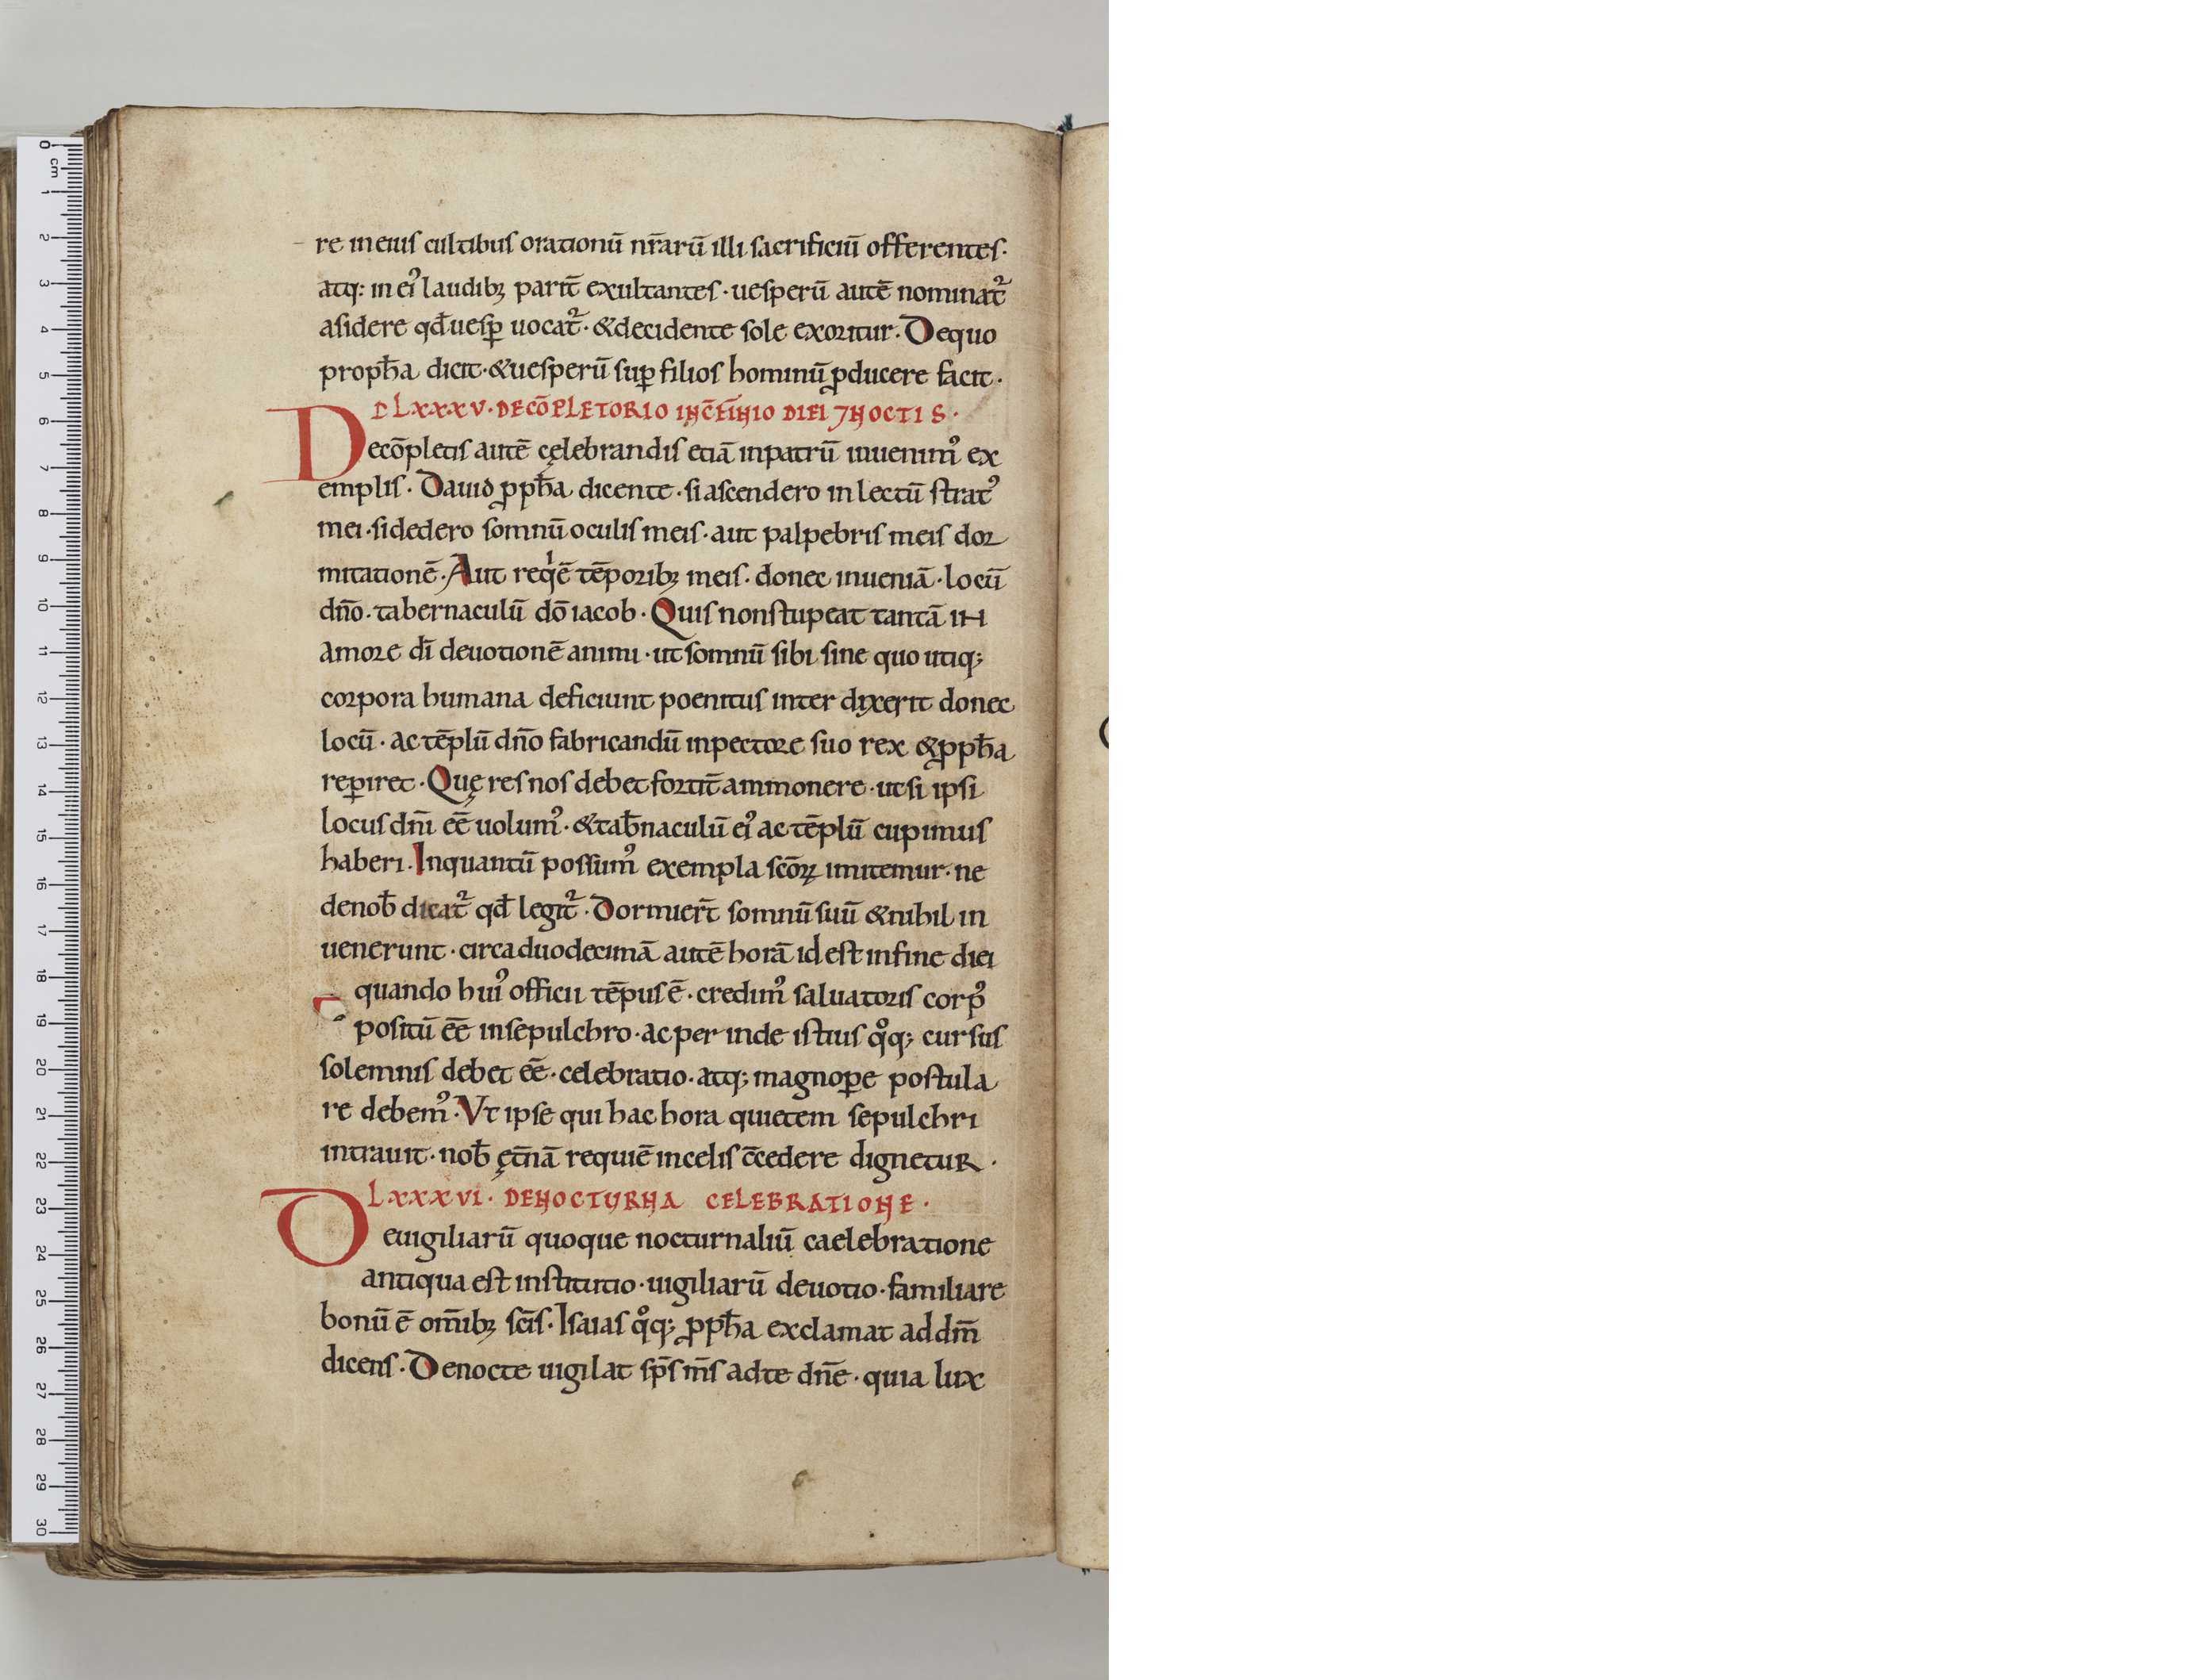 re in eius cultibus orationū nr̄arū illi sacrificiū offerentes·
atq: in ei᾽ laudibꝫ parit̄ exultantes· uesperū autē nominat᷑
asidere qđ uesꝑ uocat᷑· &decidente sole exoritur· Dequo
proph̄a dicit· &uesperū suꝑ filios hominū ꝓducere facit·
LXXXV· DECŌPLETORIO
DIEI ⁊NOCTIS·
Decōpletis autē cęlebrandis etiā inpatrū inuenimꝰ ex
emplis· Dauid ꝓph̄a dicente· si ascendero in lectū stratꝰ
mei· sidedero somnū oculis meis· aut palpebris meis dor
mitationē· Aut reqͥē tēporibꝫ meis· donec inueniā· locū
dn̄o· tabernaculū dō iacob· Quis nonstupeat tantā in
amore dī deuotionē animi· ut somnū sibi sine quo utiq;
corpora humana deficiunt poenitus inter dixerit donec
locū· ac tēplū dn̄o fabricandū inpectore suo rex &ꝓph̄a
reꝑiret· Quę res nos debet fortit̄ ammonere· utsi ipsi
locus dn̄i eē uolumꝰ· &tab̄naculū eiꝰ ac tēplū cupimus
haberi· Inquantū possumꝰ exempla scōꝝ imitemur· ne
denob̄ dicat᷑ qđ legit᷑· Dormuer̄t somnū suū &nihil in
uenerunt· circa duodecimā autē horā id est infine diei
quando huiꝰ officii tēpus ē· credimꝰ saluatoris corpꝰ
positū eē insepulchro· ac per inde istius qͦq; cursus
solemnis debet eē· celebratio· atq; magnoꝑe postula
re debemꝰ· Vt ipse qui hac hora quietem sepulchri
intrauit· nob̄ ęt̄nā requiē incelis c̄cedere dignetur·
LXXXVI· DENOCTURNA CELEBRATIONE·
Deuigiliarū quoque nocturnaliū caelebratione
antiqua est institutio· uigiliarū deuotio· familiare
bonū ē om̄ibꝫ scīs· Isaias qͦq; ꝓph̄a exclamat ad dm̄
dicens· Denocte uigilat sp̄s m̄s adte dn̄e· quia lux
0 cm 1 2 3 4 5 6 7 8 9 10 11 12 13 14 15 16 17 18 19 20 21 22 23 24 25 26 27 28 29 30